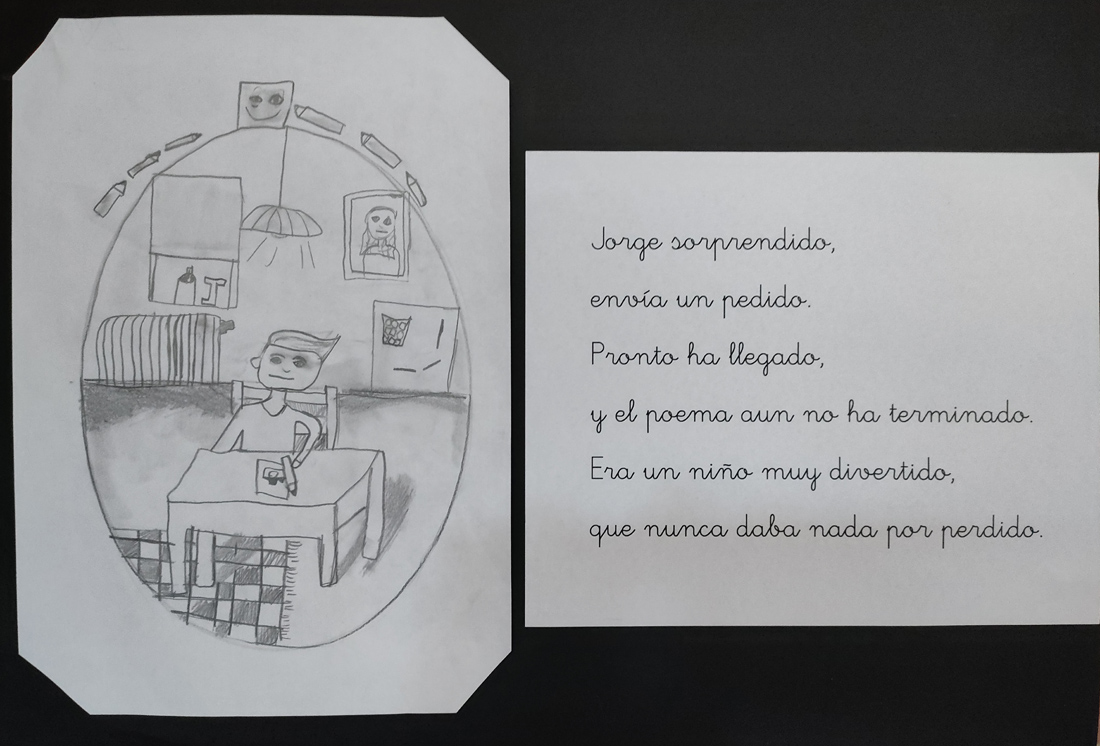 J
Jorge sorprendido,
envía un pedido.
Pronto ha llegado,
y el poema aun no ha terminado.
Era un niño muy divertido,
que nunca daba nada por perdido.